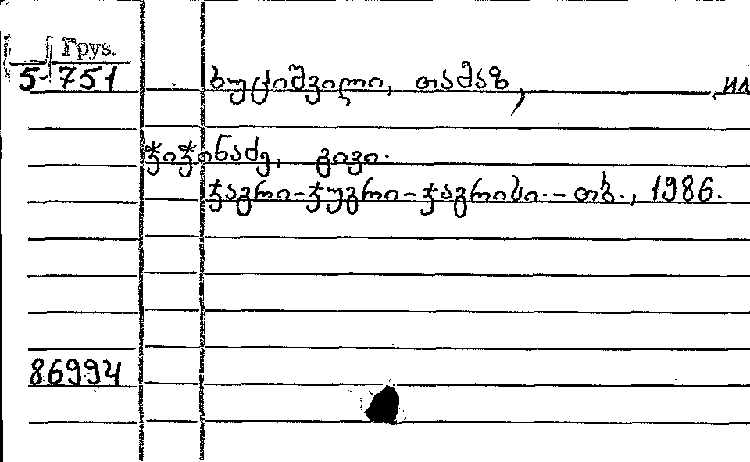 Груз.
5-751
ხუციშვილი, თამაზ, ил
ჭიჭინაძე, გივი.
ჭაგრი-ჭუგრი-ჭაგრისი.-თბ., 1986.
86994